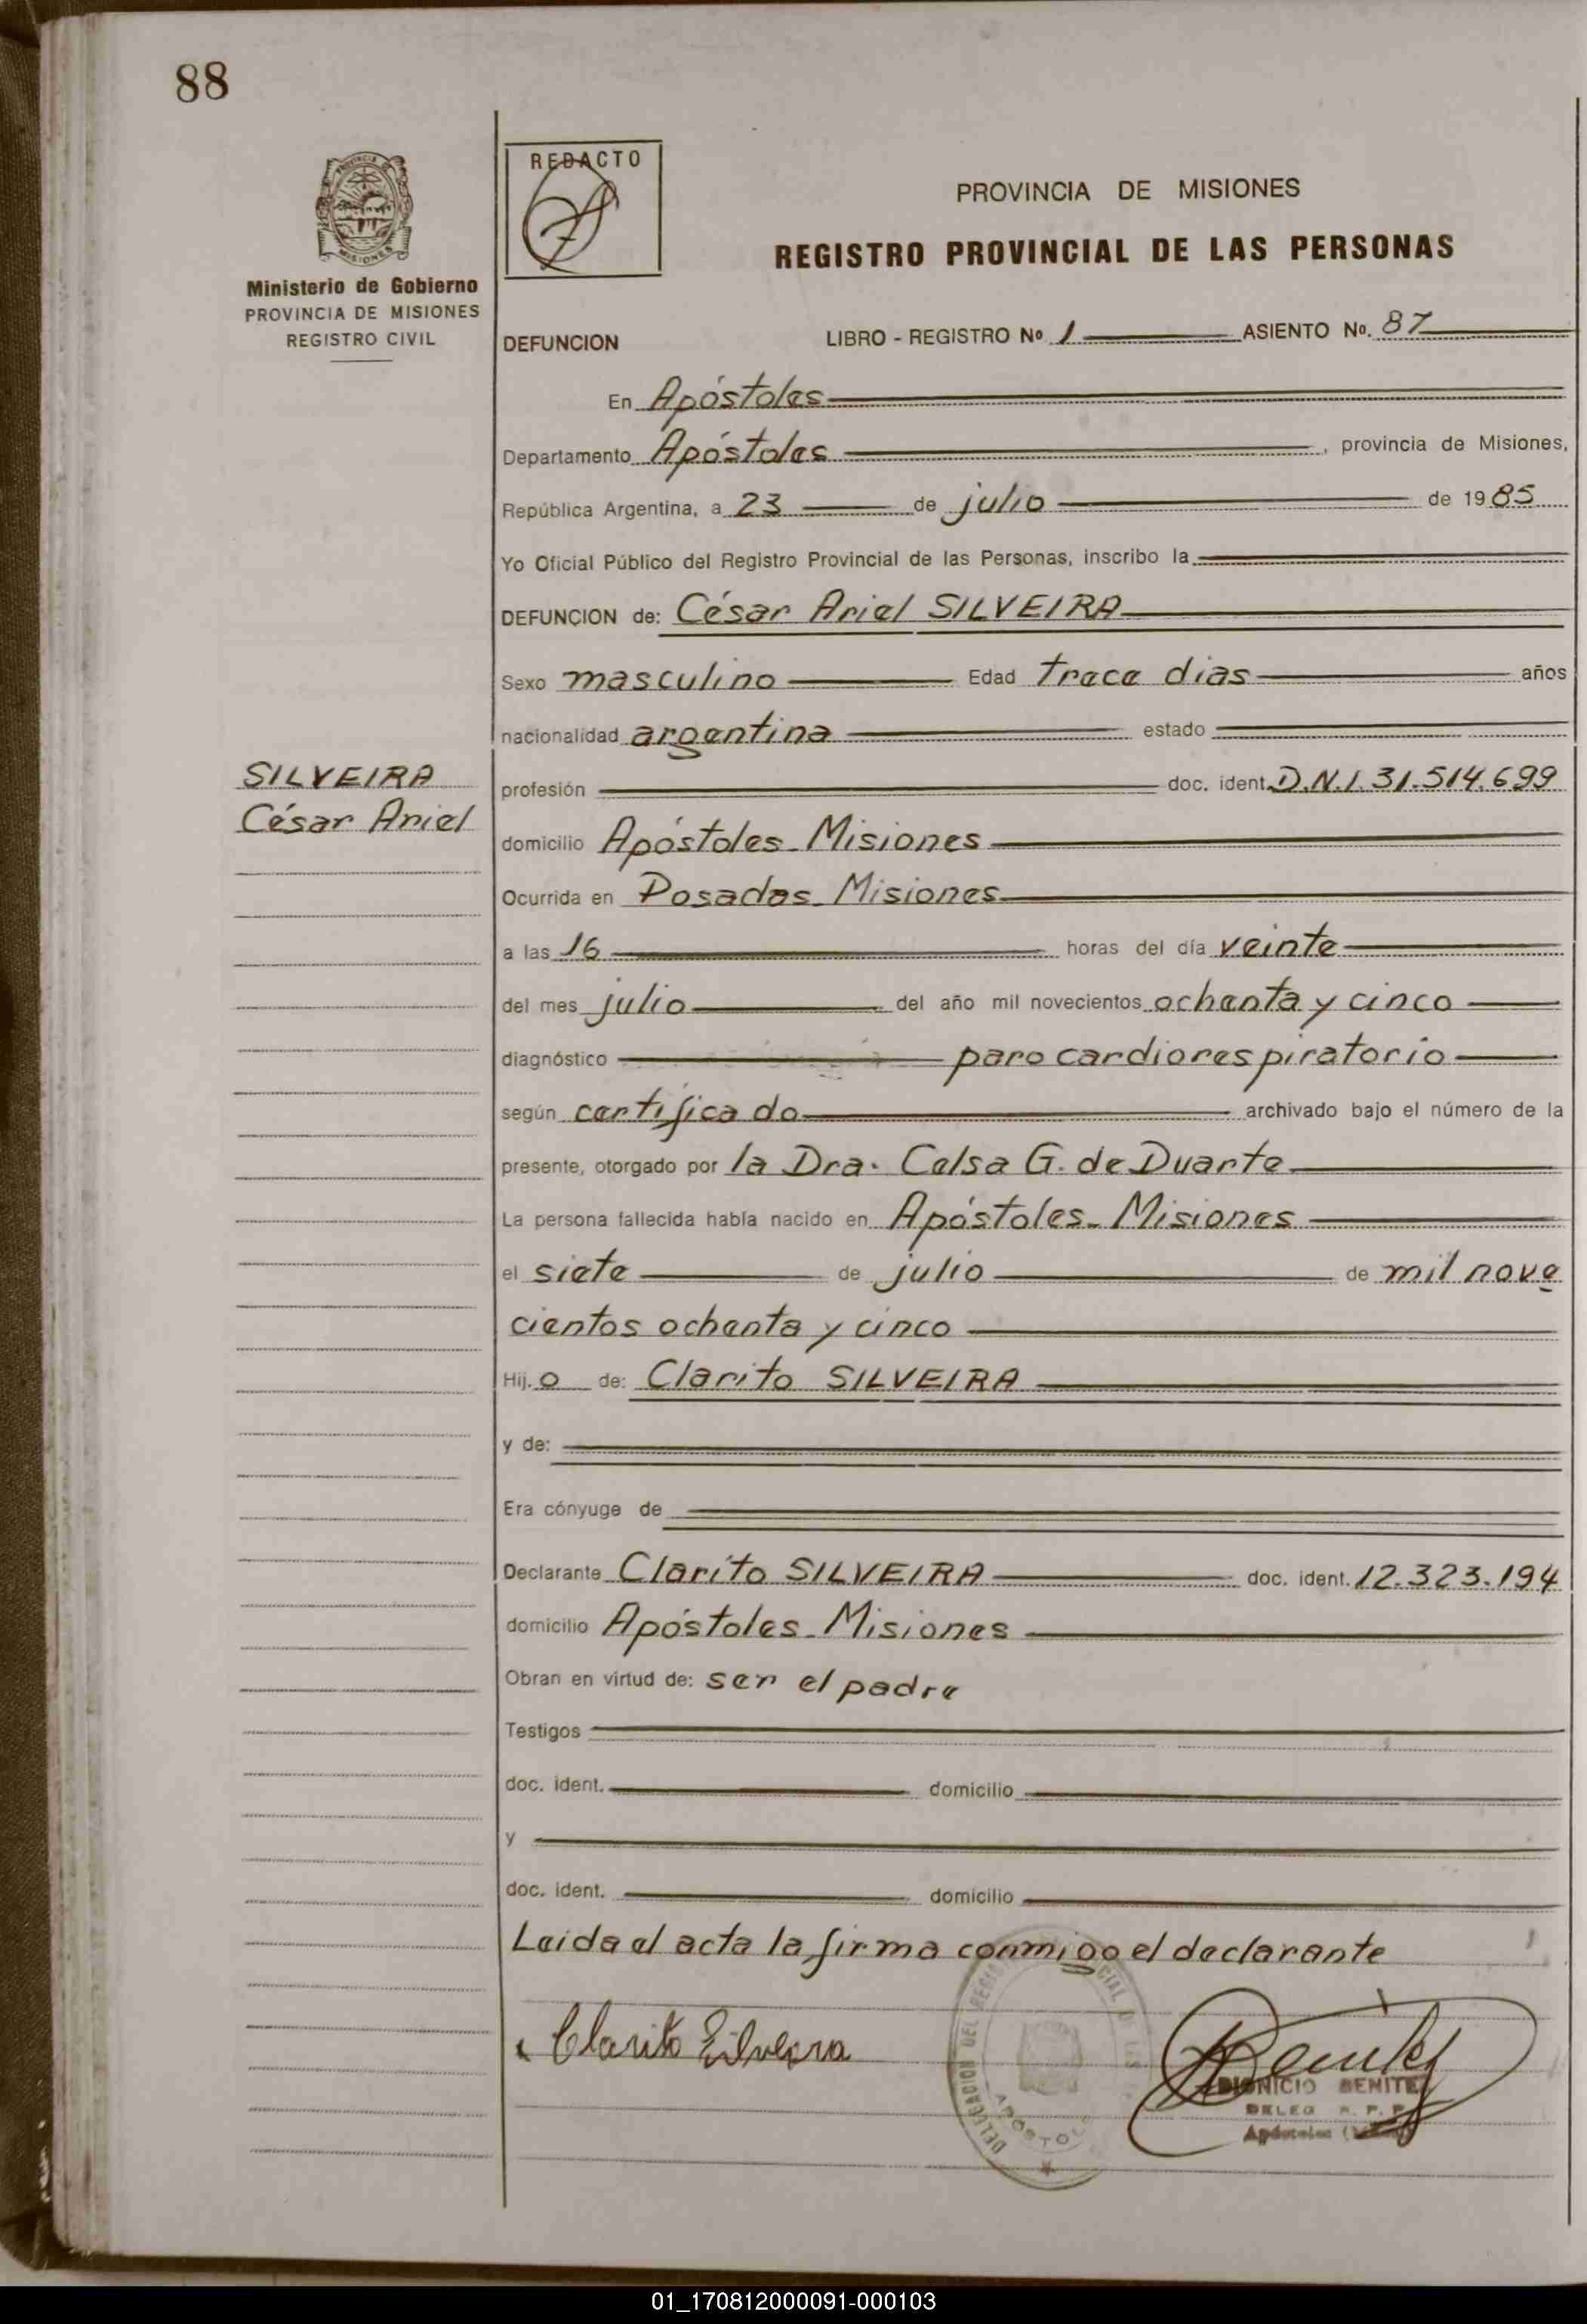 88
PROVINCIA DE
MISIONES
Ministerio de Gobierno
PROVINCIA DE MISIONES
REGISTRO CIVIL
REDACTO
PROVINCIA DE MISIONES
REGISTRO PROVINCIAL DE LAS PERSONAS
DEFUNCION LIBRO - REGISTRO Nº 1 ASIENTO Nº. 87
En Apóstoles
Departamento Apóstoles, provincia de Misiones,
República Argentina, a 23 de julio de 1985
Yo Oficial Público del Registro Provincial de las Personas, inscribo la
DEFUNCION de: César Ariel SILVEIRA
Sexo masculino Edad trece dias años
nacionalidad argentina estado
SILVEIRA
César Ariel
profesión doc. ident. D.N.I. 31.514.699
domicilio Apóstoles - Misiones
Ocurrida en Posadas - Misiones
a las 16 horas del día veinte
del mes julio del año mil novecientos ochenta y cinco
diagnóstico paro cardiorespiratorio
según certificado archivado bajo el número de la
presente, otorgado por la Dra. Celsa G. de Duarte
La persona fallecida había nacido en Apóstoles - Misiones
el siete de julio de mil nove
cientos ochenta y cinco
Hij.o de: Clarito SILVEIRA
y de:
Era cónyuge de
Declarante Clarito SILVEIRA doc. ident. 12.323.194
domicilio Apóstoles - Misiones
Obran en virtud de: ser el padre
Testigos
doc. ident. domicilio
y
doc. ident. domicilio
Leida el acta la firma conmigo el declarante
Clarito Silveira
Benitez
DIONICIO BENITEZ
DELEG R. P. P.
Apóstoles
DELEGACION DEL
APOSTOLES
01_170812000091-000103